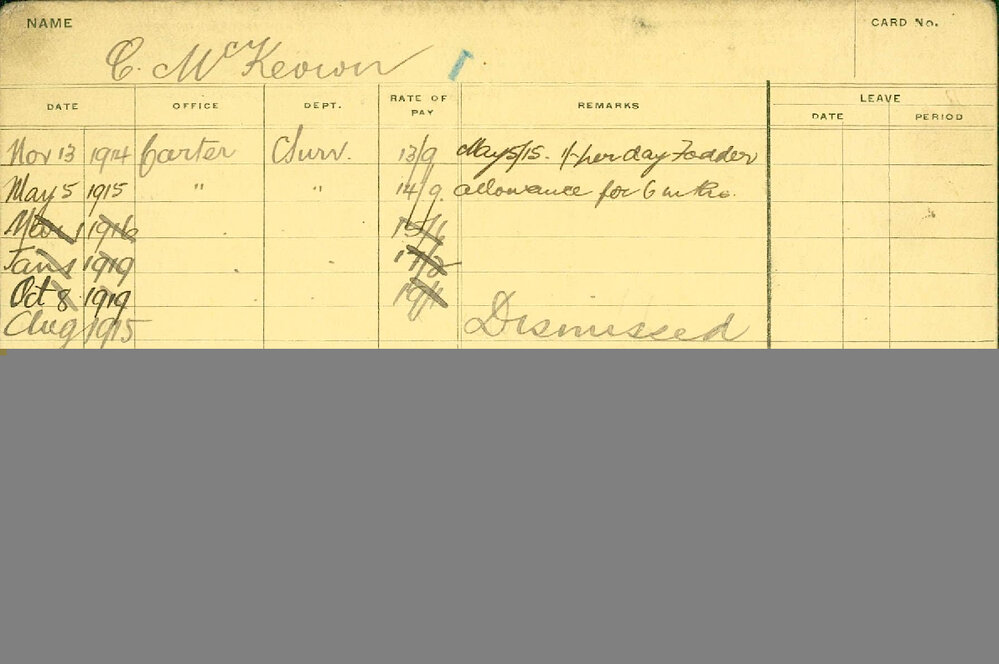 NAME
CARD No.
C. McKeown
DATE OFFICE DEPT. RATE OF PAY REMARKS LEAVE
DATE PERIOD
Nov 13 1914 Carter Surv. 13/9 May 5/15. 1/- per day Fodder
May 5 1915 " " 14/9. allowance for 6 mths.
Mar 1 1916 15/6
Jan 1 1919 17/2
Oct 8 1919 19/1
Aug 1915 Dismissed